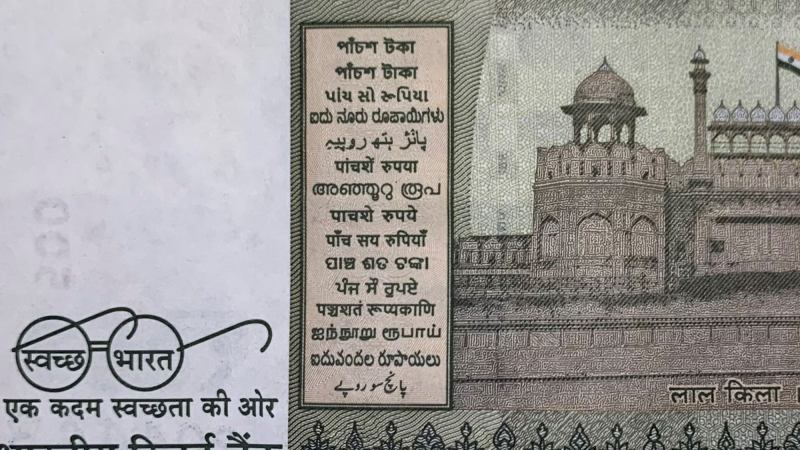 স্বच्छ भारत
एक कदम स्वच्छता की ओर
পাঁচশ টকা
পাঁচশ টাকা
પાંચ સો રૂપિયા
ಐದು ನೂರು ರೂಪಾಯಿಗಳು
پانژ ہتھ روپیہ
पांचशें रुपया
അഞ്ഞൂറു രൂപ
पाचशे रुपये
पाँच सय रुपियाँ
ପାଞ୍ଚ ଶତ ଟଙ୍କା
ਪੰਜ ਸੌ ਰੁਪਏ
पञ्चशतं रूप्यकाणि
ஐந்நூறு ரூபாய்
ఐదువందల రూపాయలు
پانچ سو روپے
लाल किला